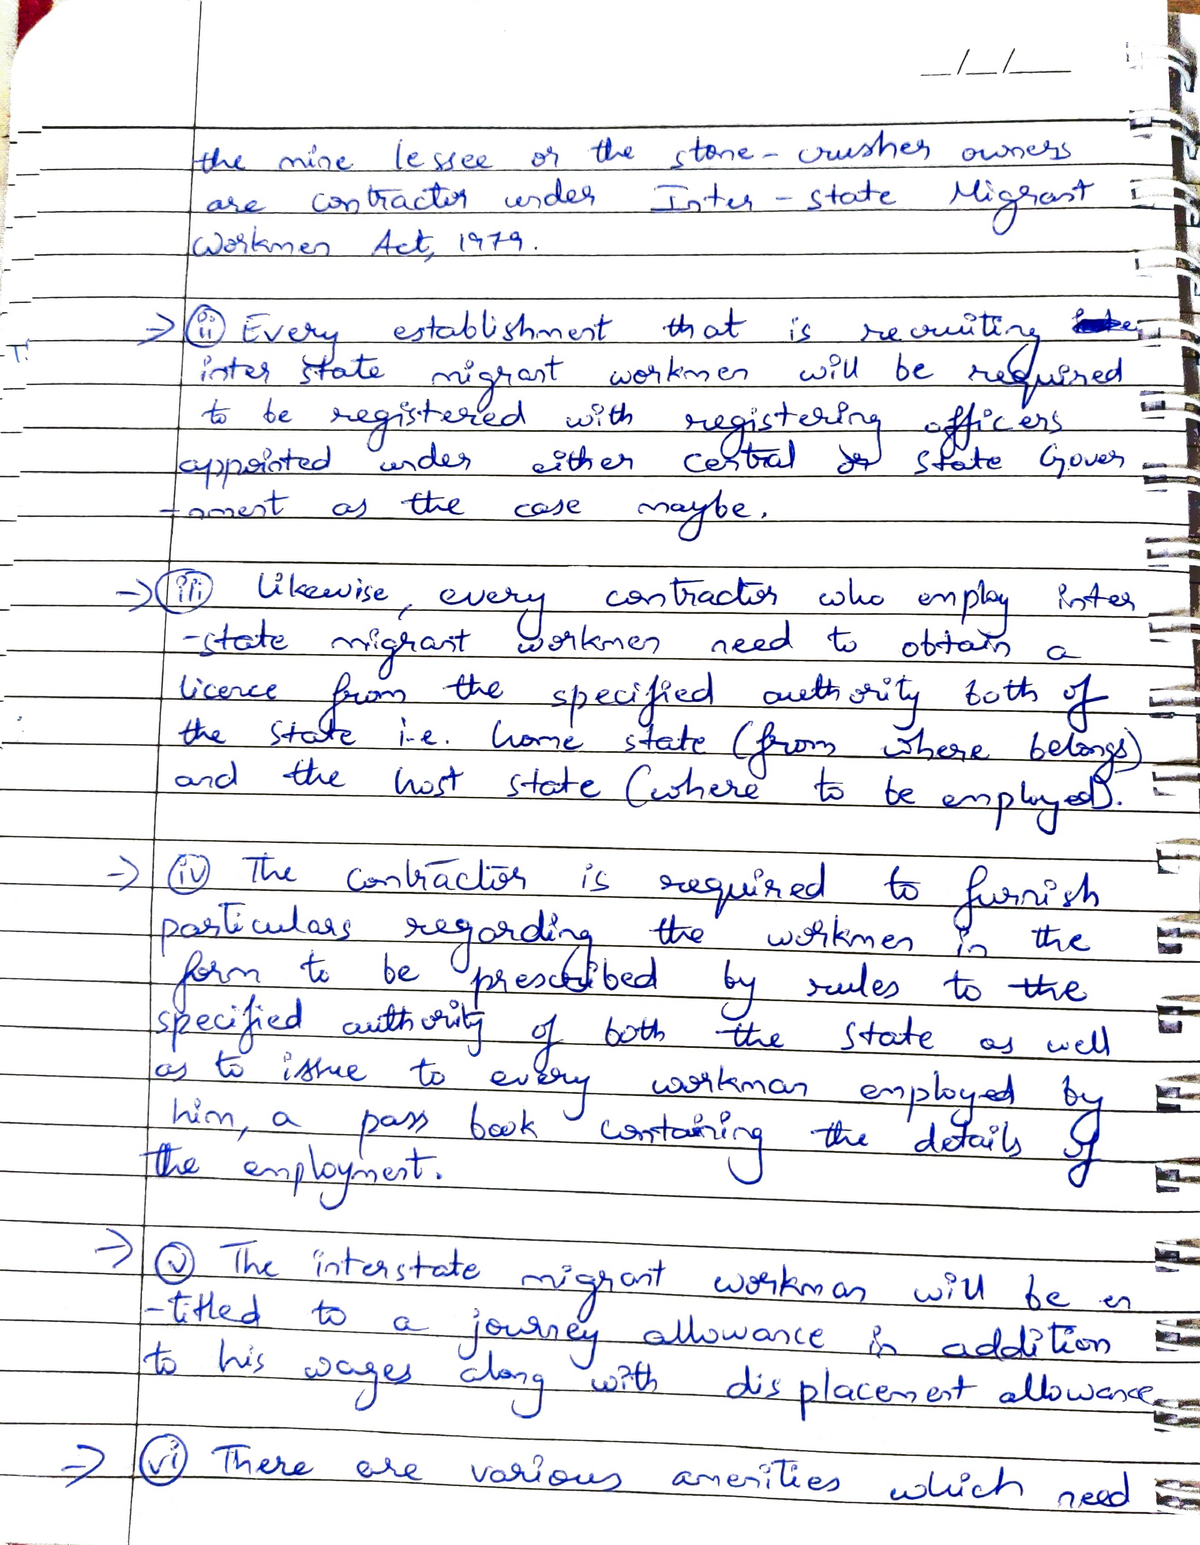 _/_/_
the mine lessee or the stone-crusher owners
are contractor under Inter-state Migrant
Workmen Act, 1979.
⇒ (ii) Every establishment that is recruiting
inter state migrant workmen will be required
to be registered with registering officers
appointed under either central or state Gover
-nment as the case maybe.
→ (iii) Likewise, every contractor who employ inter
-state migrant workmen need to obtain a
licence from the specified authority both of
the state i.e. home state (from where belongs)
and the host state (where to be employed).
⇒ (iv) The contractor is required to furnish
particulars regarding the workmen in the
form to be prescribed by rules to the
specified authority of both the state as well
as to issue to every workman employed by
him, a pass book containing the details of
the employment.
⇒ (v) The interstate migrant workman will be en
-titled to a journey allowance in addition
to his wages along with displacement allowance
⇒ (vi) There are various amenities which need